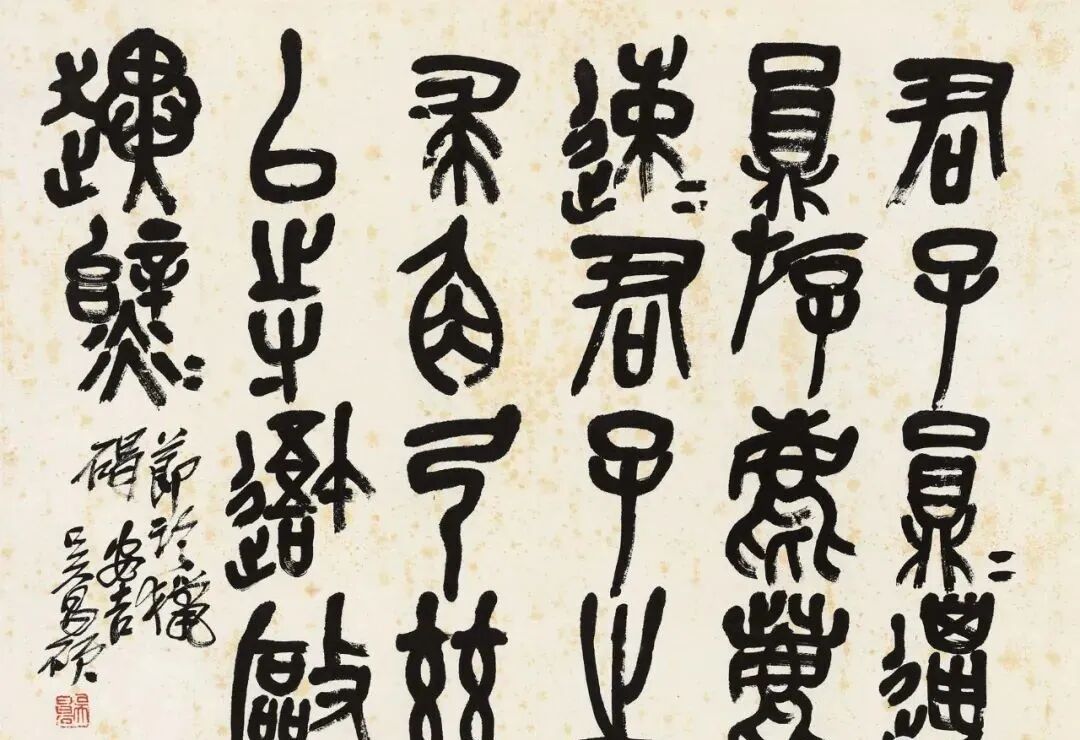 君子員=邋
員斿麀鹿
速=君子之
求角弓茲
以寺䢩敺
趩
節臨獵
碣安吉
吳昌碩